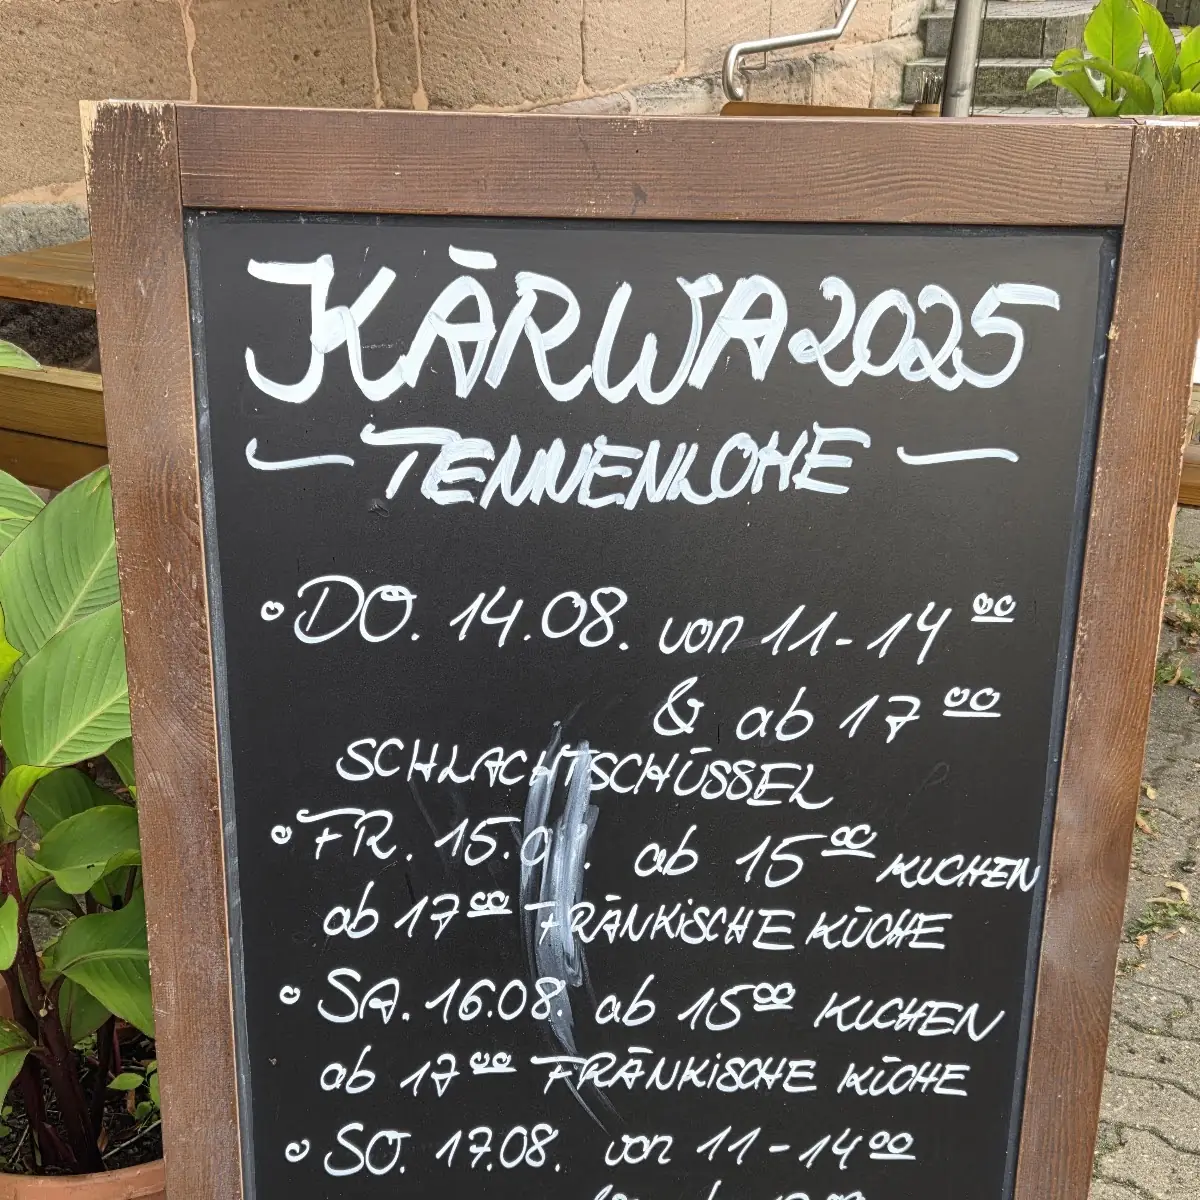 KÄRWA 2025
— TENNENLOHE —
° DO. 14.08. von 11 - 14 00
& ab 17 00
SCHLACHTSCHÜSSEL
° FR. 15.0 . ab 15 00 KUCHEN
ab 17 00 FRÄNKISCHE KÜCHE
° SA. 16.08. ab 15 00 KUCHEN
ab 17 00 FRÄNKISCHE KÜCHE
° SO. 17.08. von 11 - 14 00